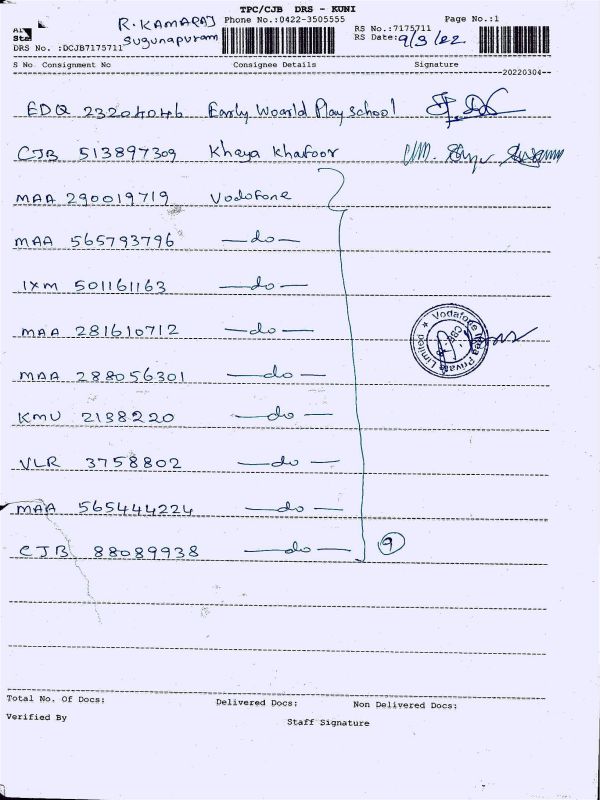 TPC/CJB DRS - KUNI
R. KAMARAJ
Sugunapuram
Phone No.:0422-3505555
RS No.:7175711
Page No.:1
RS Date: 9/3/22
DRS No. :DCJB7175711
S No Consignment No Consignee Details Signature
20220304
EDQ 23204046 Early Woarld Play school
CJB 513897309 Kheya khafoor
MAA 290019719 Vodofone
MAA 565793796 —do—
IXM 501161163 —do—
MAA 281610712 —do—
Vodafone Idea Private Limited
MAA 288056301 —do—
KMU 2138220 —do—
VLR 3758802 —do—
MAA 565444224 —do—
CJB 88089938 —do— 9
Total No. Of Docs: Delivered Docs: Non Delivered Docs:
Verified By Staff Signature